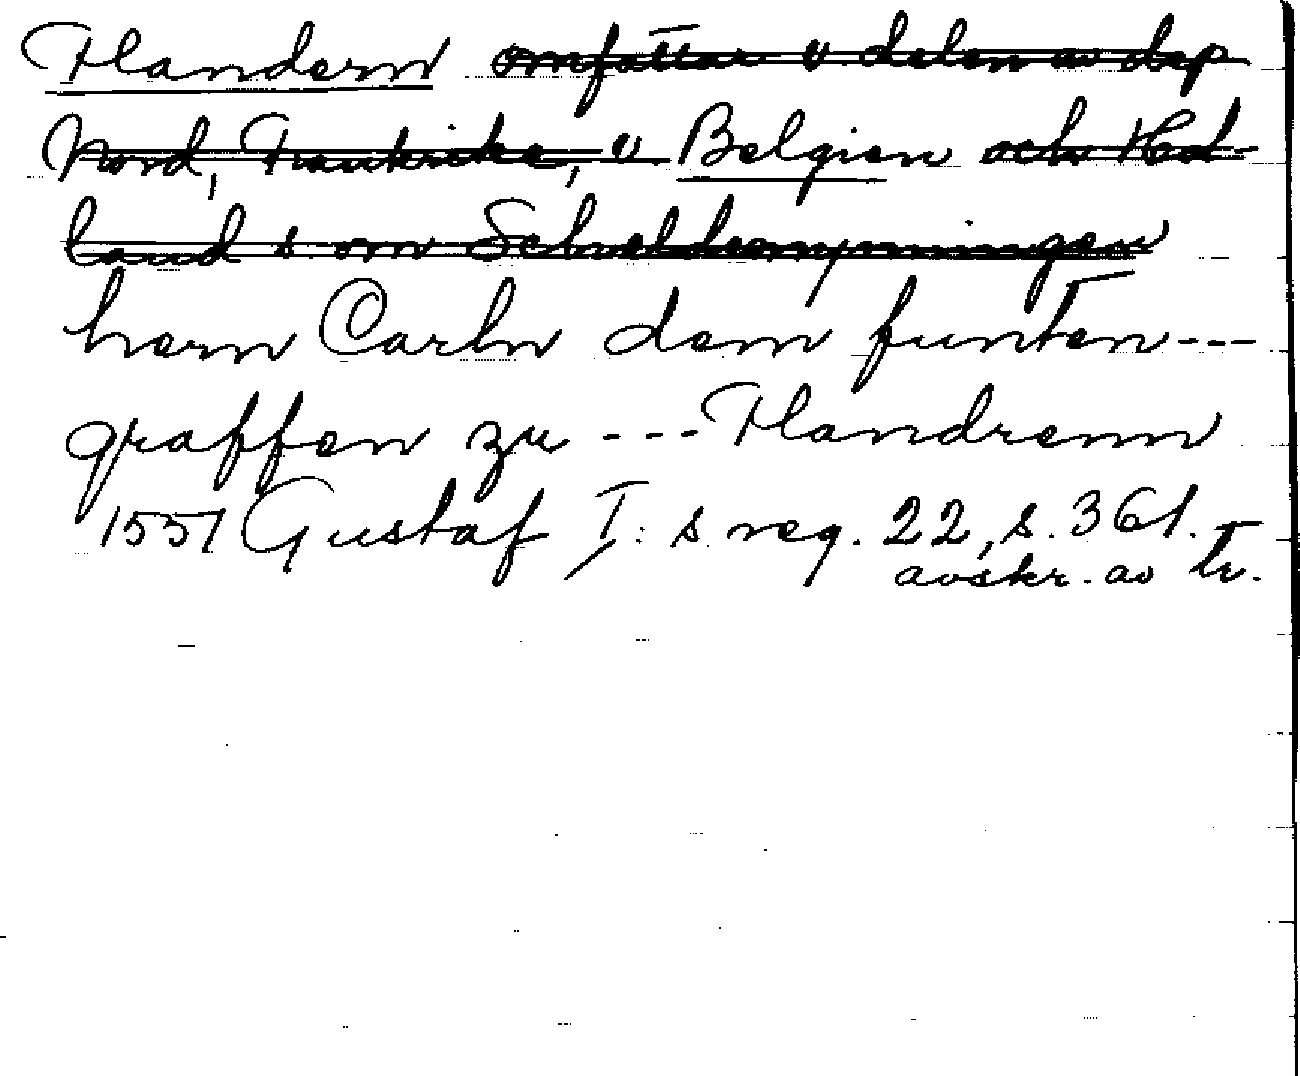 Flandern omfattar v delen av dep
Nord, Frankrike, v Belgien och Hol-
land s om Scheldemynningen
hern Carln dem funten ---
graffen zu --- Flandrenn
1551 Gustaf I: s reg. 22, s. 361.
avskr. av tr.